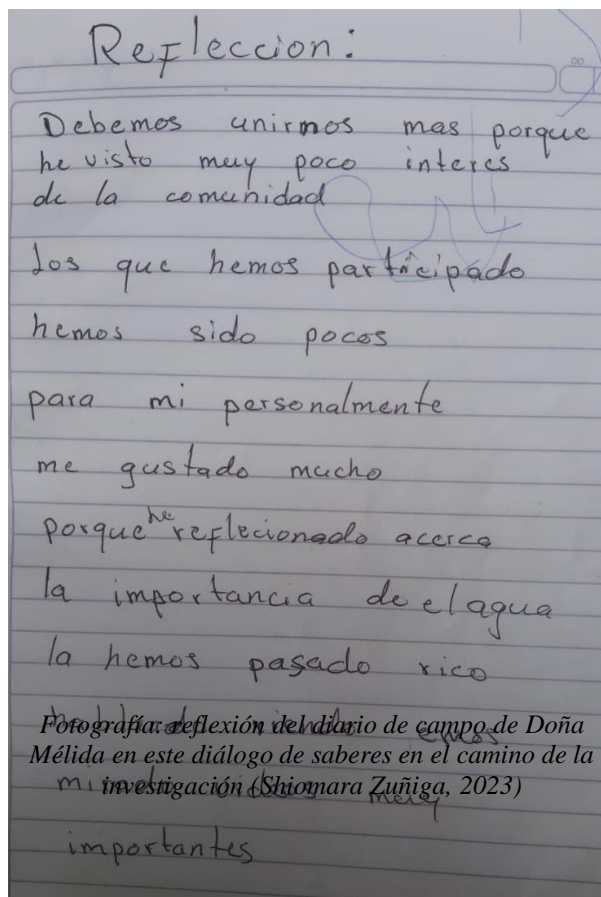 Refleccion:
Debemos unirnos mas porque
he visto muy poco interes
de la comunidad
Los que hemos participado
hemos sido pocos
para mi personalmente
me gustado mucho
porque he reflecionado acerca
la importancia de el agua
la hemos pasado rico
Fotografía: reflexión del diario de campo de Doña
Mélida en este diálogo de saberes en el camino de la
investigación (Shiomara Zuñiga, 2023)
importantes